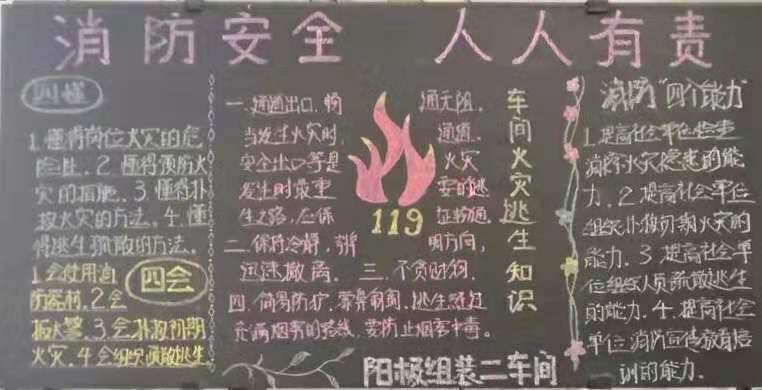 消防安全 人人有责
四懂
1.懂得岗位火灾的危
险性.2.懂得预防火
灾的措施.3.懂得扑
救火灾的方法.4.懂
得逃生疏散的方法.
四会
1.会使用消
防器材.2.会
报火警.3.会扑救初期
火灾.4.会组织疏散逃生
车间火灾逃生知识
一.通道出口,畅通无阻.
当发生火灾时,通道.
安全出口等是火灾
发生时最重要的逃
生之路,应保证畅通.
二.保持冷静,明方向,
迅速撤离.三.不贪财物.
四.简易防护,蒙鼻匍匐.逃生经过
充满烟雾的路线,要防止烟雾中毒.
119
消防"四个能力"
1.提高社会单位检查
消除火灾隐患的能
力.2.提高社会单位
组织扑救初期火灾的
能力.3.提高社会单
位组织人员疏散逃生
的能力.4.提高社会
单位消防宣传教育培
训的能力.
阳极组装二车间